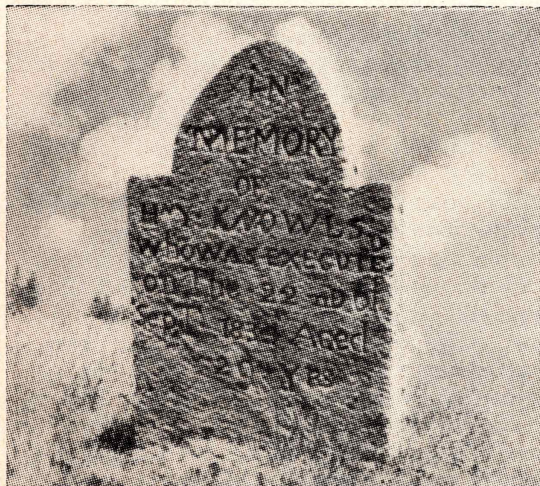 IN
MEMORY
OF
HY. KNOWLS
WHO WAS EXECUTED
on The 22 nD of
SEPT. 1834 Aged
YRS